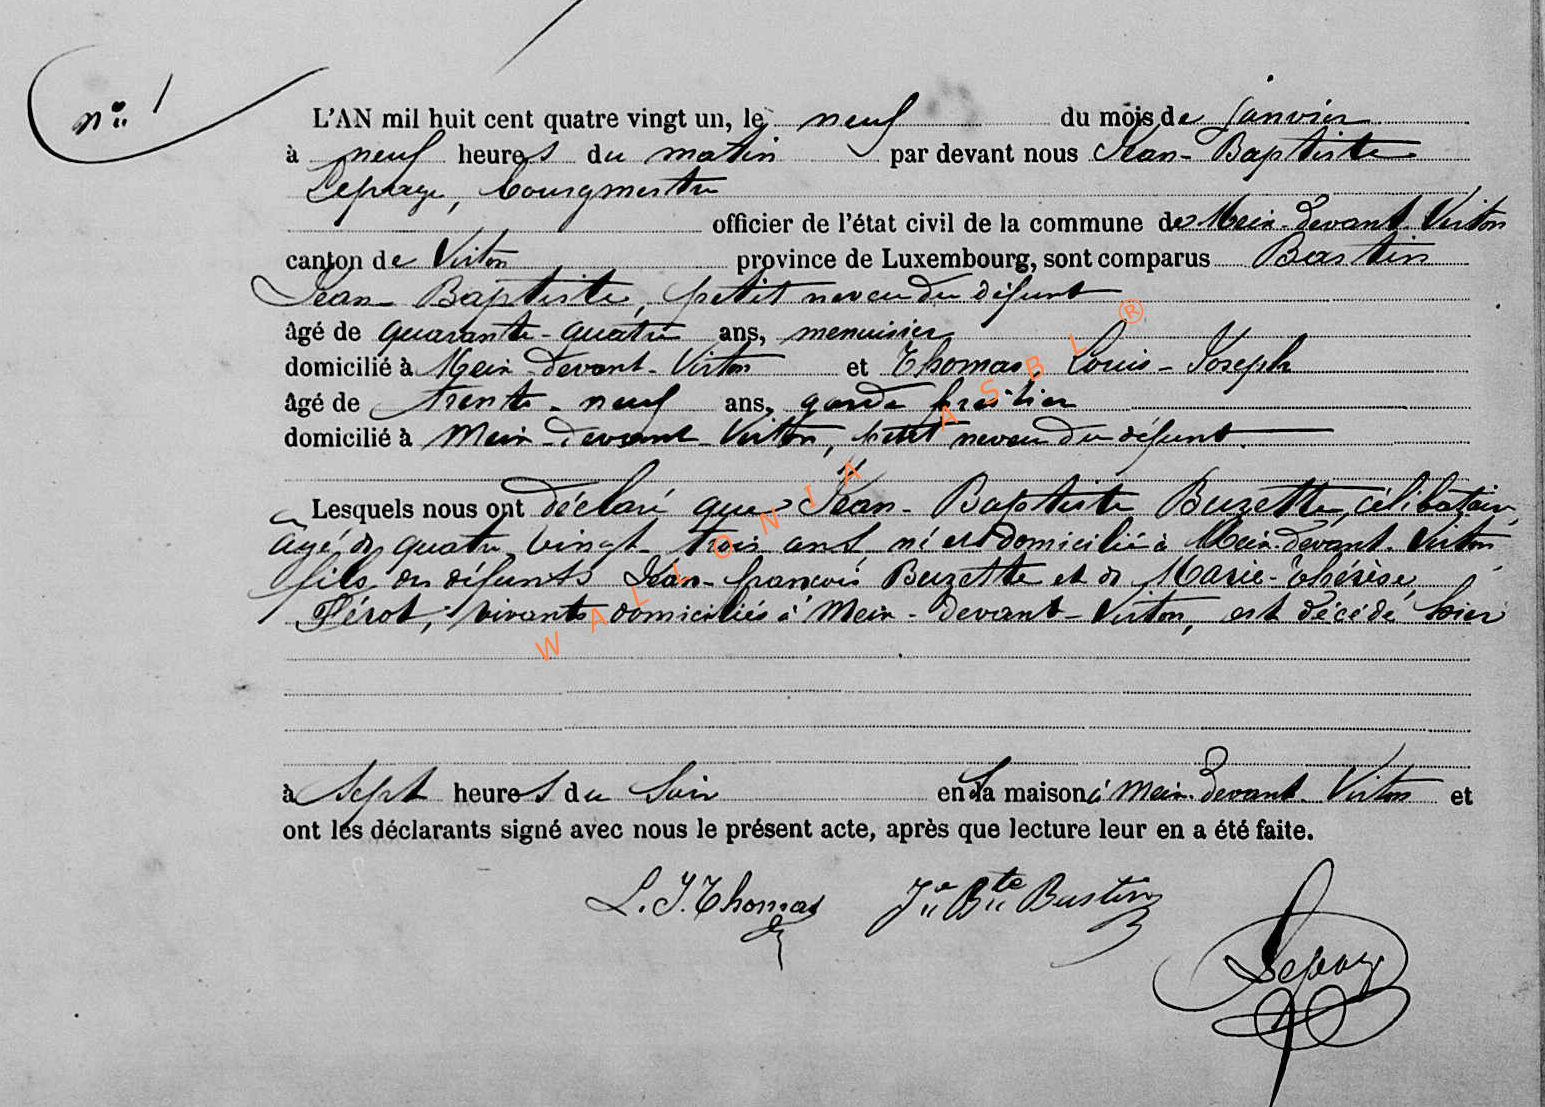 n° 1
L'AN mil huit cent quatre vingt un, le neuf du mois de Janvier
à neuf heures du matin par devant nous Jean-Baptiste
Lepage, bourgmestre
officier de l'état civil de la commune de Meix-devant-Virton
canton de Virton province de Luxembourg, sont comparus Bastin
Jean-Baptiste, petit neveu du défunt
âgé de quarante-quatre ans, menuisier
domicilié à Meix-devant-Virton et Thomas Louis-Joseph
âgé de trente-neuf ans, garde forestier
domicilié à Meix-devant-Virton, petit neveu du défunt.
Lesquels nous ont déclaré que Jean-Baptiste Buzette, célibataire,
âgé de quatre vingt trois ans, né et domicilié à Meix-devant-Virton,
fils des défunts Jean-françois Buzette et de Marie-Thérèse
Pérot, vivants domiciliés à Meix-devant-Virton, est décédé hier
à Sept heures du Soir en sa maison à Meix-devant-Virton et
ont les déclarants signé avec nous le présent acte, après que lecture leur en a été faite.
L. J. Thomas Jn Bte Bastin
Lepage
WALLONIA ASBL ®